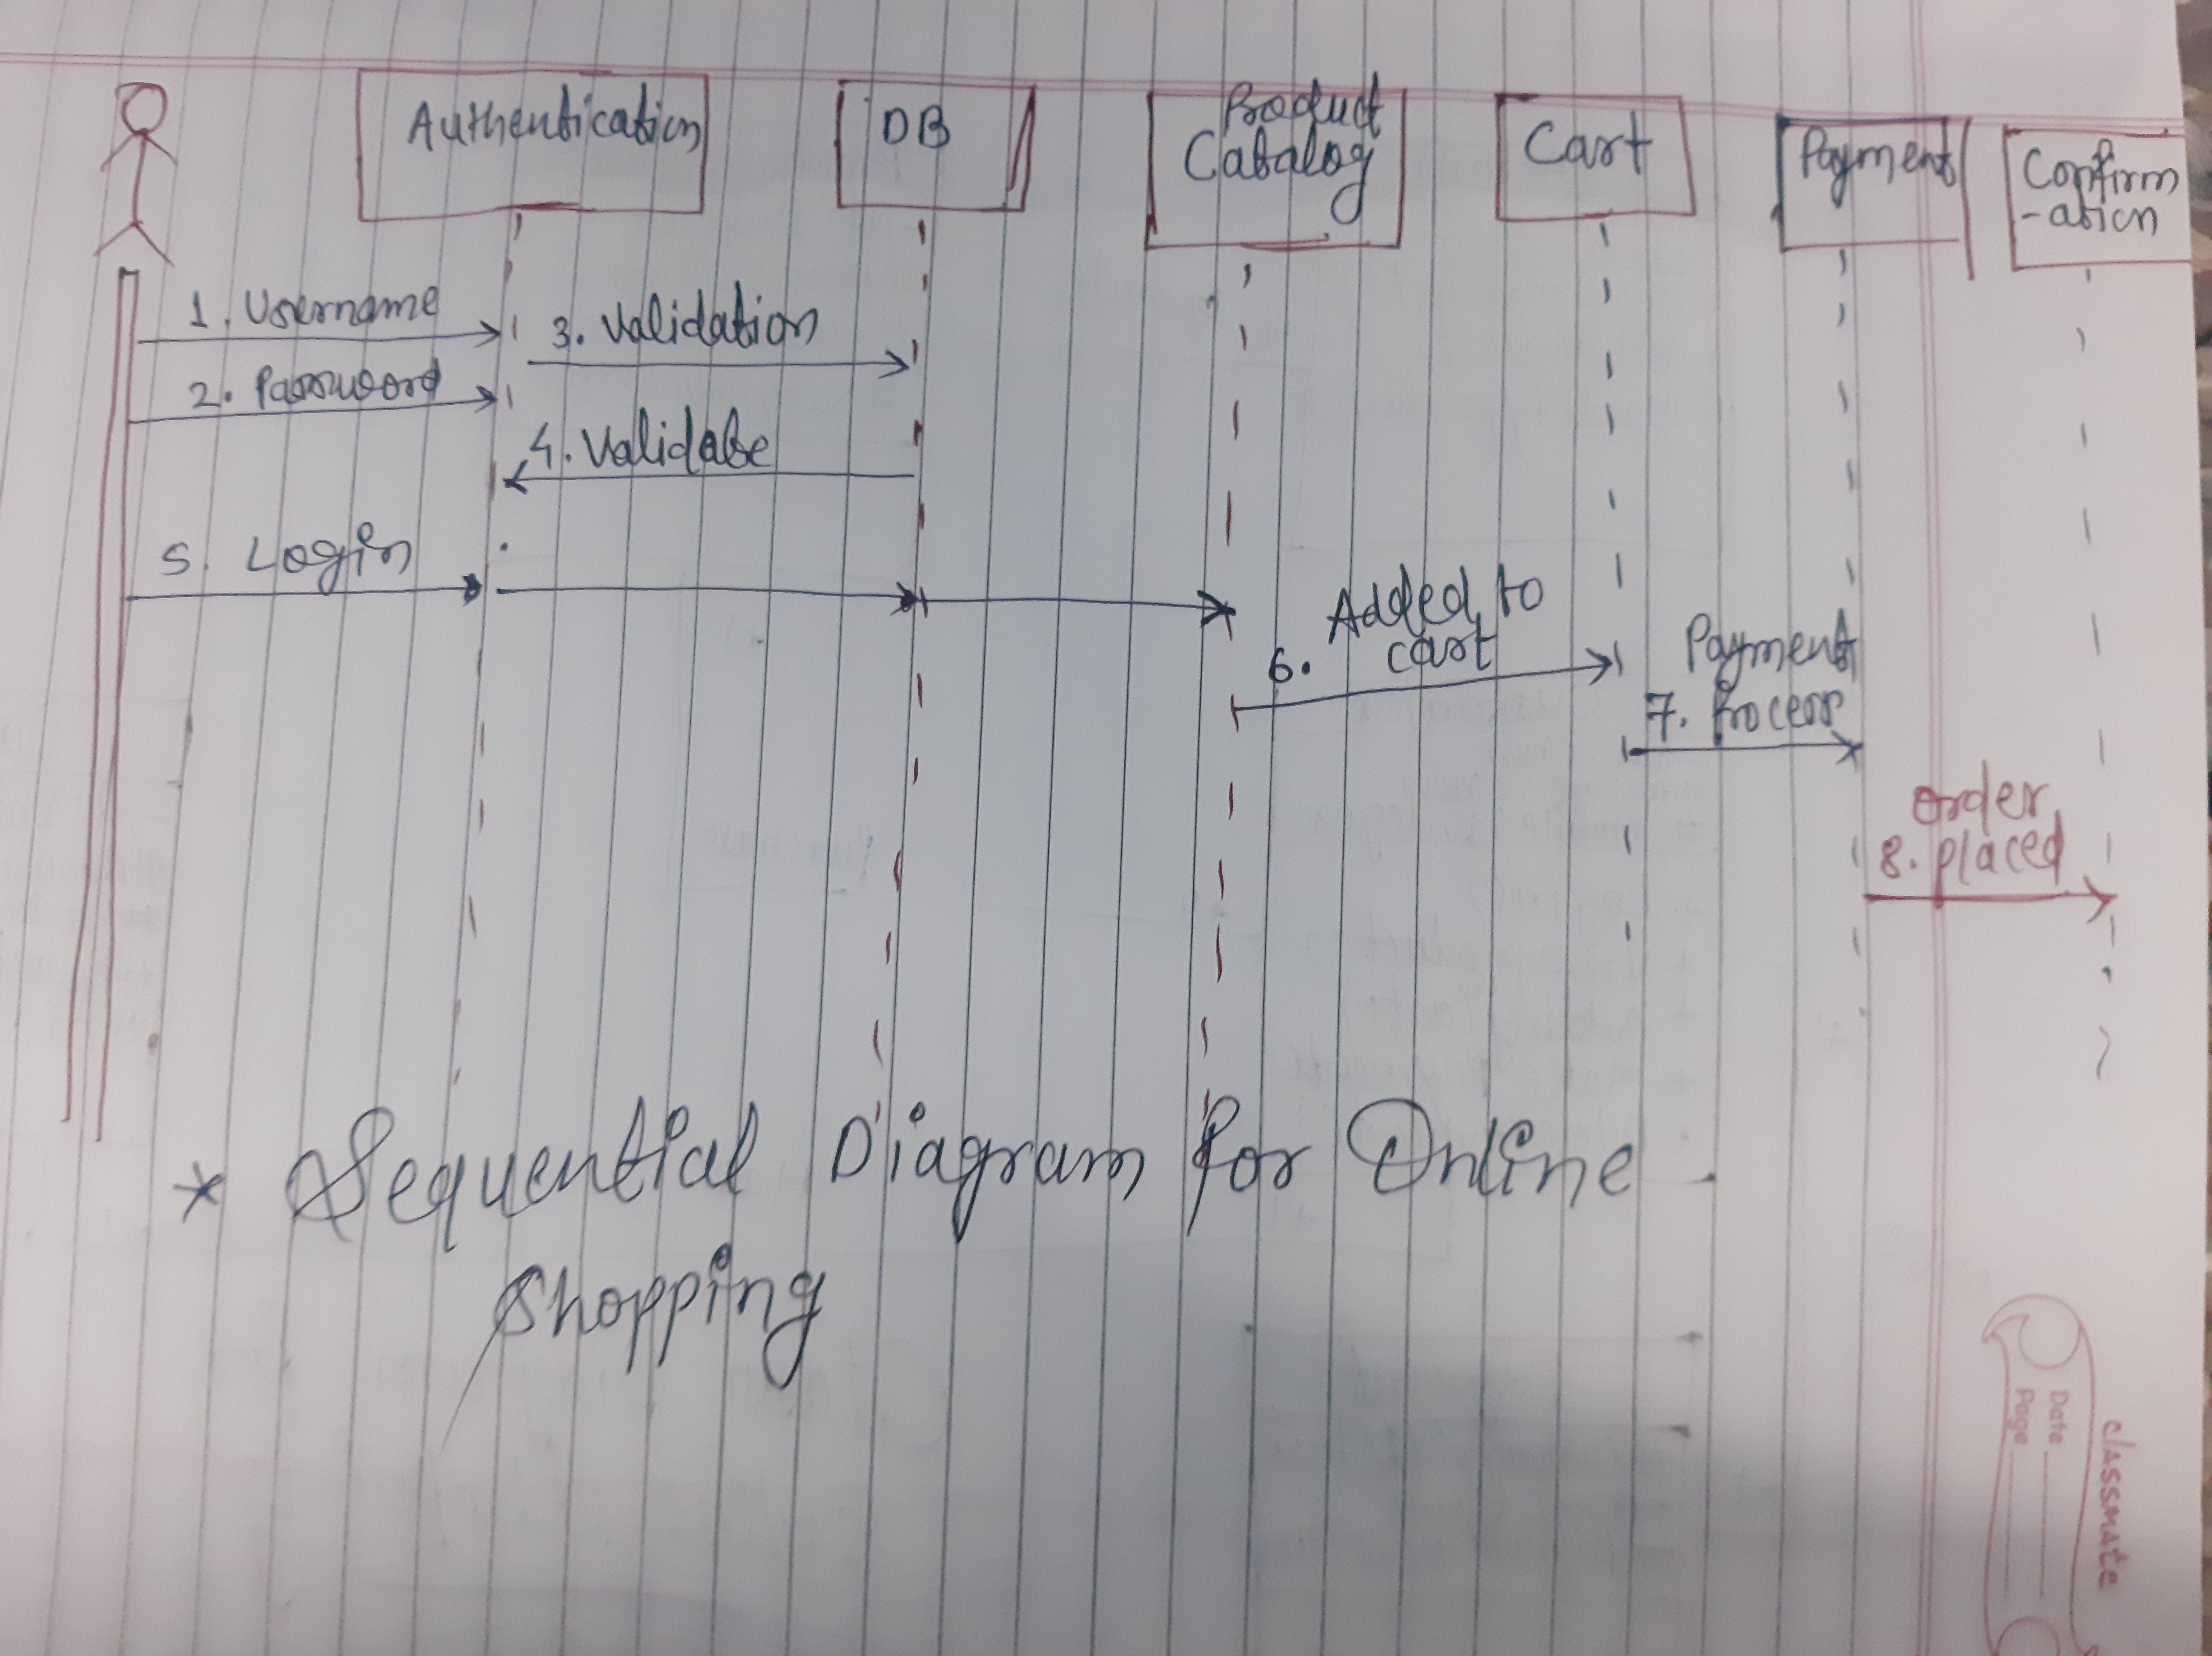 Authentication
DB
Product
Catalog
Cart
Payment
Confirm
-ation
1. Username
2. Password
3. Validation
4. Validate
5. Login
6. Added to
cart
Payment
7. Process
Order
8. placed
* Sequential Diagram for Online
Shopping
classmate
Date
Page